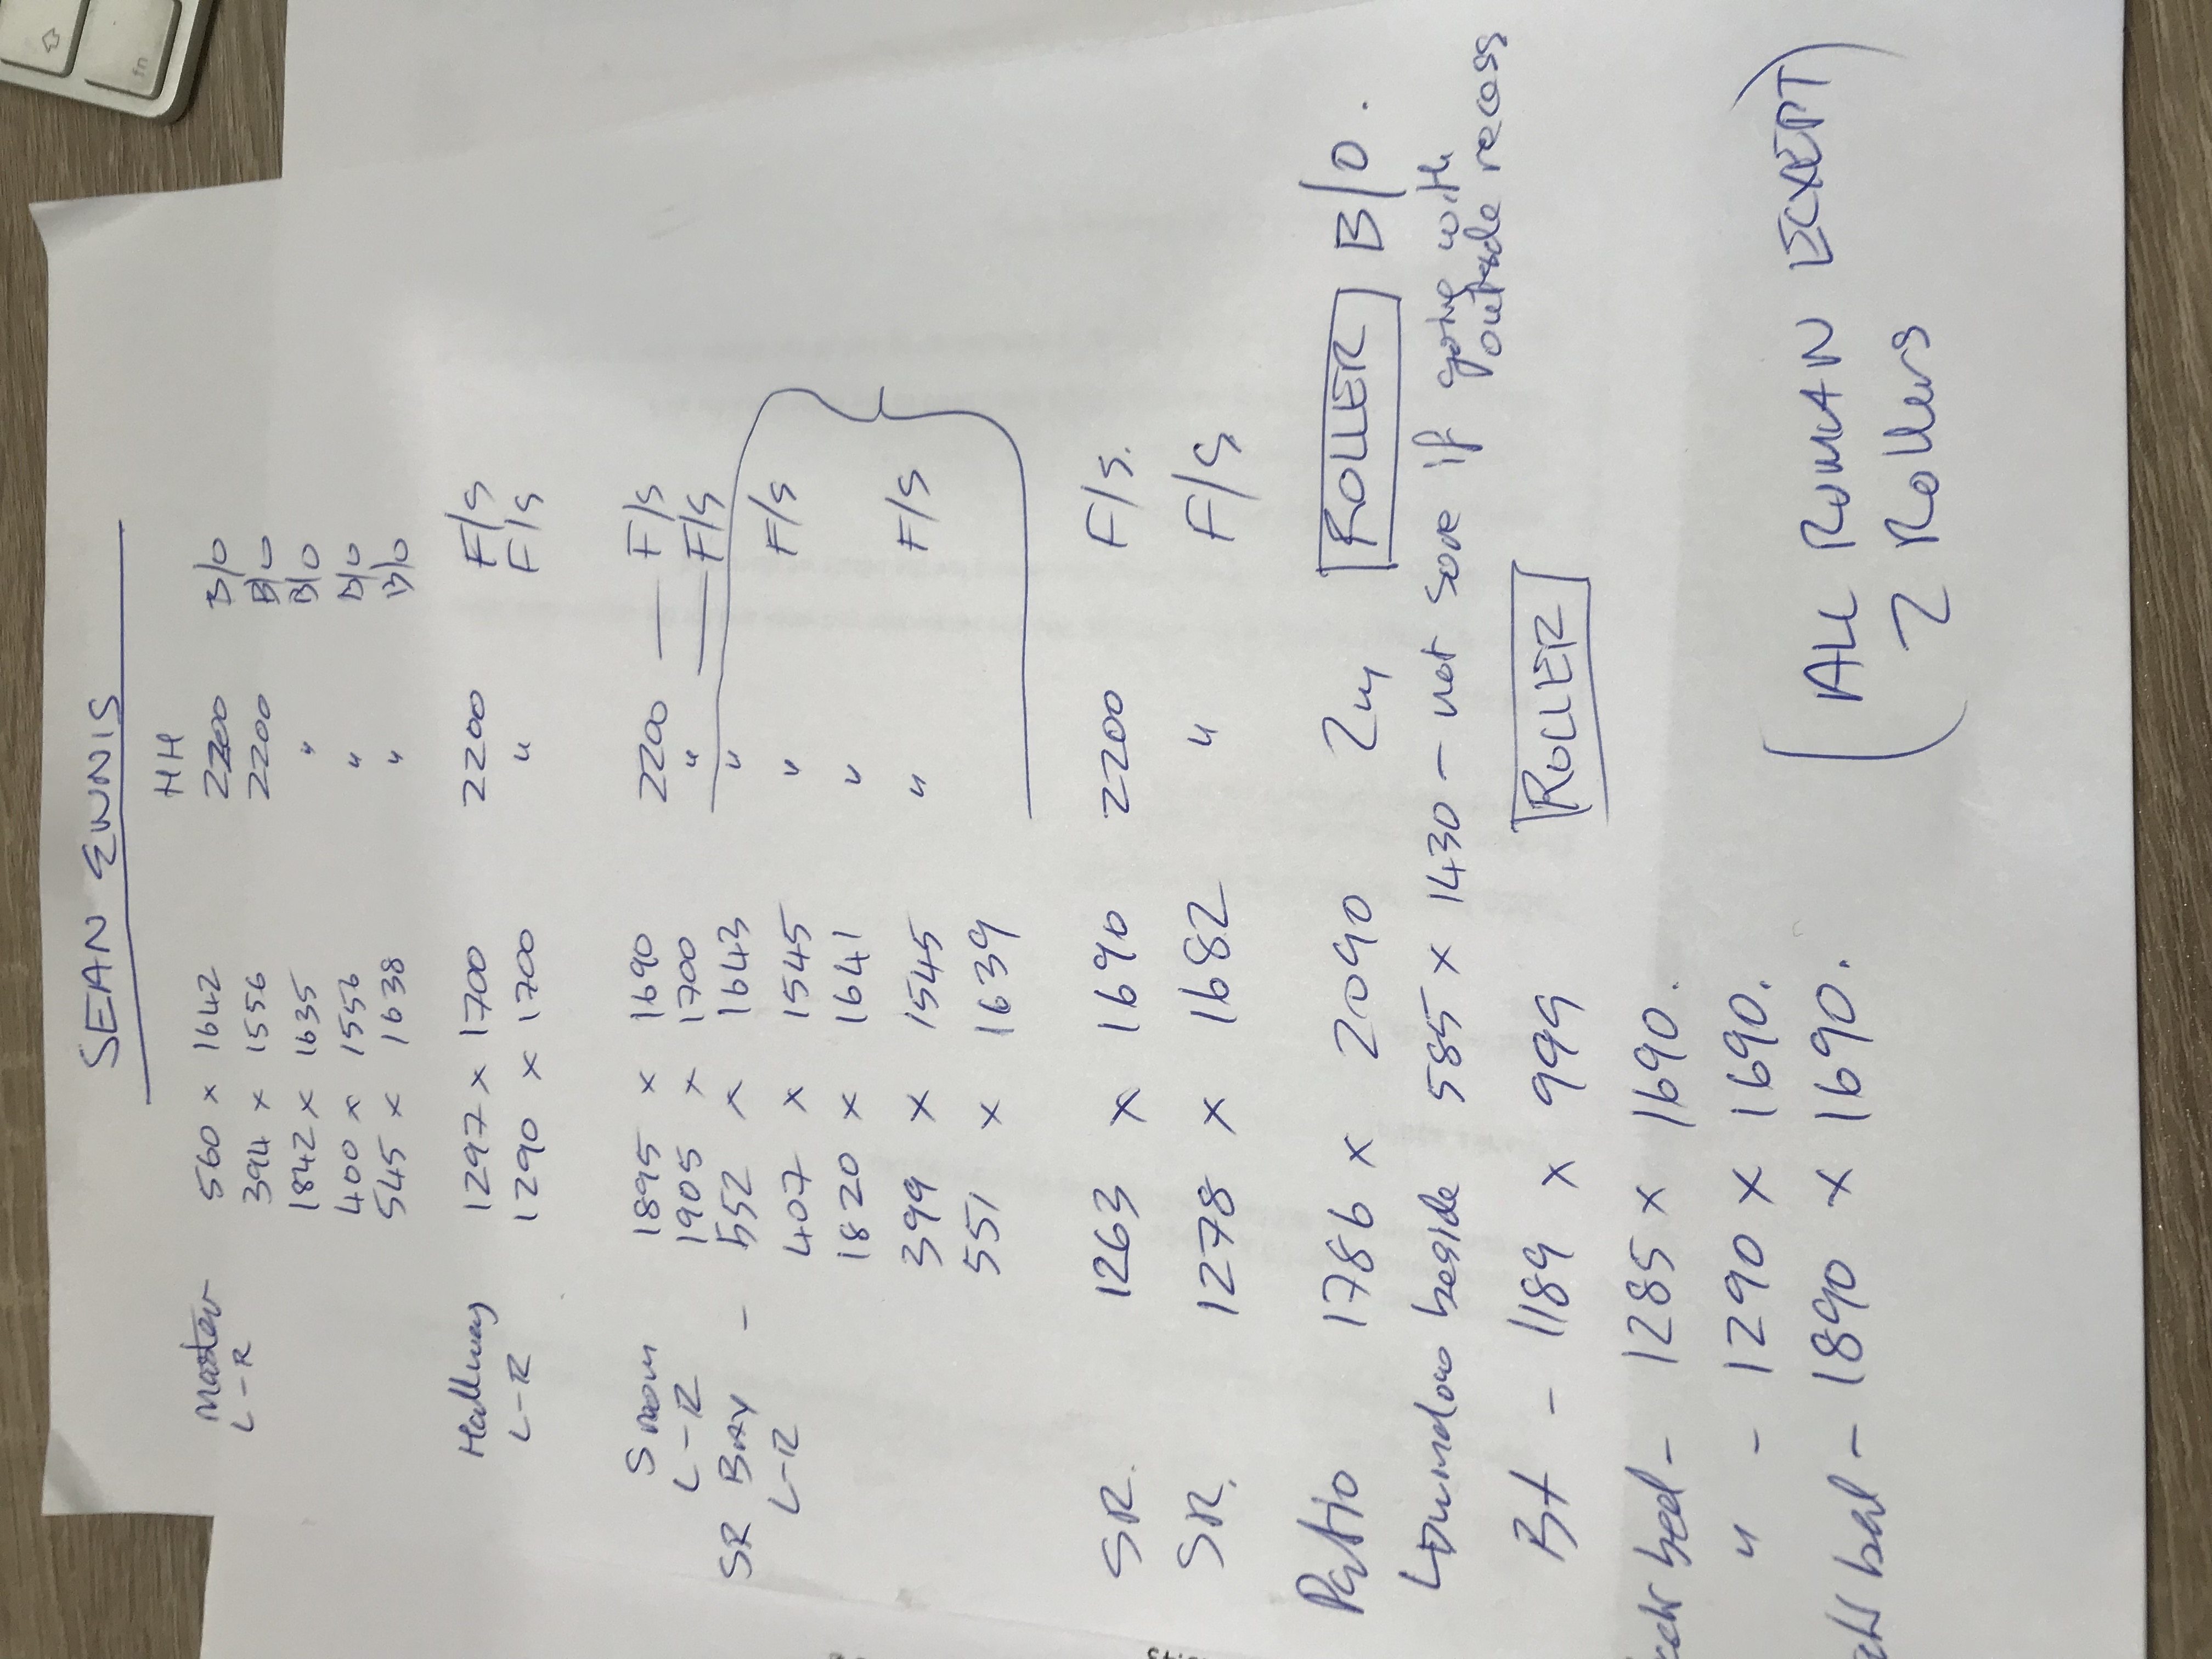 SEAN ENNIS
HH
Master 560 x 1642 2200 B/O
L-R 394 x 1556 2200 B/O
1842 x 1635 " B/O
400 x 1556 " B/O
545 x 1638 " B/O
Hallway 1297 x 1700 2200 F/S
L-R 1290 x 1700 " F/S
S room 1895 x 1690 2200 — F/S
L-R 1905 x 1700 " — F/S
SR BAY - 552 x 1643 "
L-R 407 x 1545 " F/S
1820 x 1641 "
399 x 1545 " F/S
551 x 1639
SR. 1263 x 1690 2200 F/S.
SR. 1278 x 1682 " F/S
Patio 1786 x 2090 2m ROLLER B/O.
Window beside 585 x 1430 - not sore if going with
outside recess
Bt - 1189 x 999 ROLLER
bed - 1285 x 1690.
" - 1290 x 1690.
bed - 1890 x 1690.
(ALL ROMAN ECXEPT)
2 Rollers